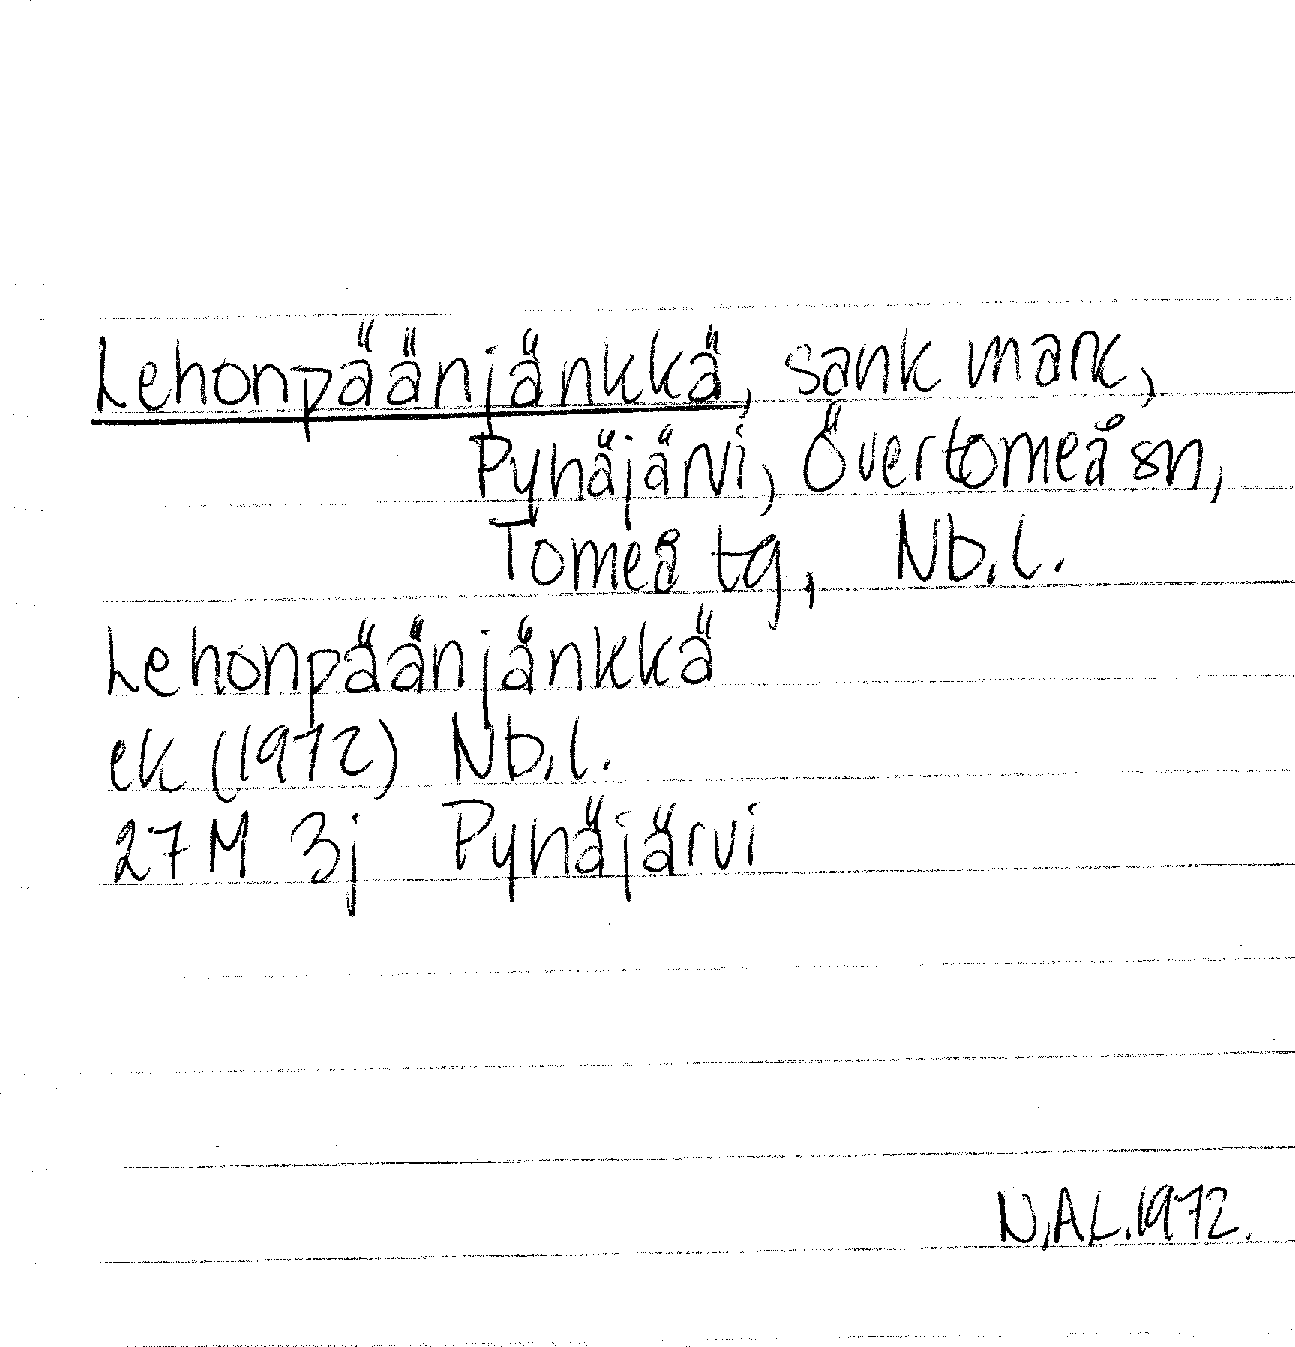 Lehonpäänjänkkä, sank mark,
Pyhäjärvi, Övertorneå sn,
Torneå tg, Nb.l.
Lehonpäänjänkkä
ek (1972) Nb.l.
27 M 3j Pyhäjärvi
N.A.L. 1972.